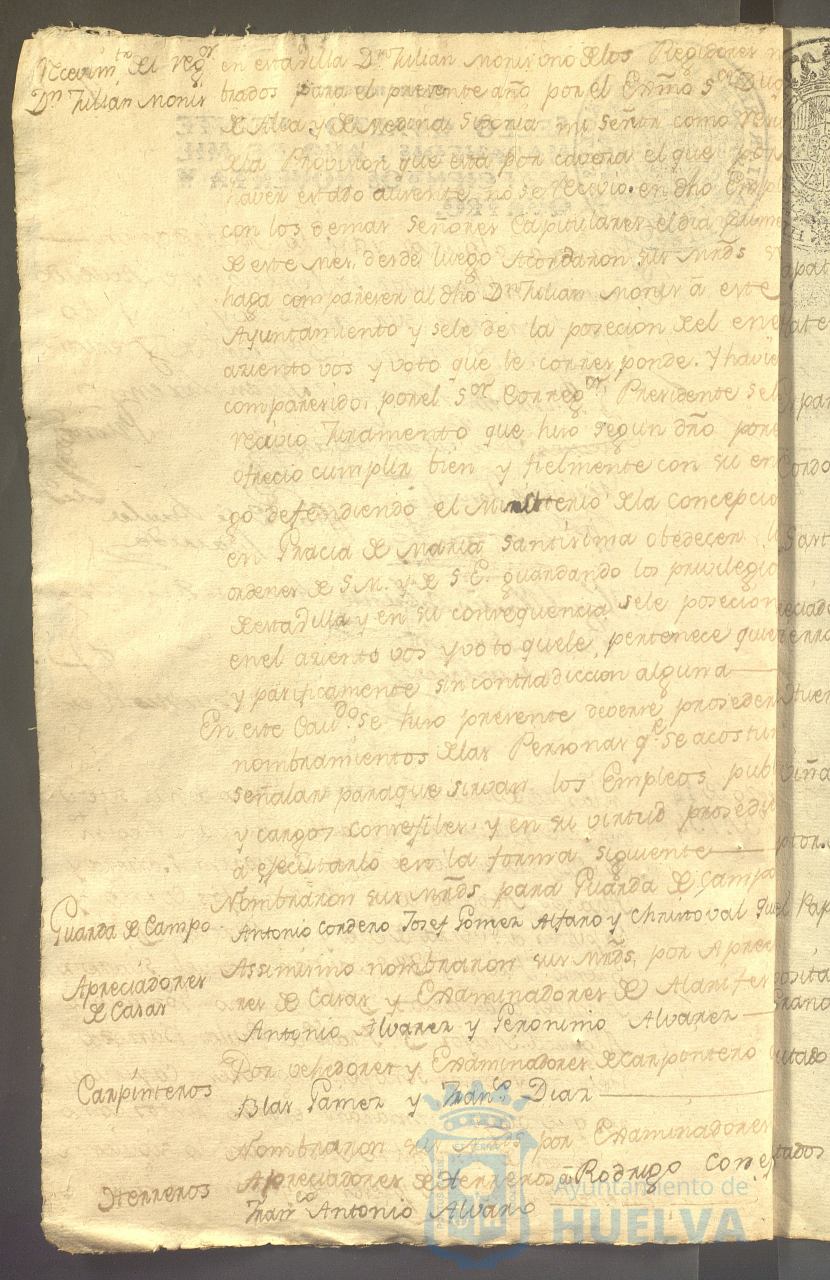 Recevim.ta del Reg.or
D.n Julian Monis
en esta Villa D.n Julian Monis uno de los Regidores n
brados para el presente año por el Exmo S.or Duq
de Alva y de Medina Sidonia mi señor como
de la Provincia, que esta por cavesa el que por
haver estado ausente no se recevio en dho Emp
con los demas señores Capitulares el dia prime
de este mes, desde luego Acordaron sus mrds se
haga compareser al dho D.n Julian Monis â este
Ayuntamiento y sele de la posecion del en el
aziento vos y voto que le corresponde. Y havie
comparesido, por el S.or Correg.or Presidente sele
recivio Juramento que hizo segun dro y
ofrecio cumplir bien y fielmente con su en
go defendiendo el Ministerio de la Concepcio
en Gracia de Maria Santisima obedecer l
ordenes de S.M. y de S.E. guardando los privilegio
de esta Villa y en su consequencia sele posecion
en el aziento vos y voto que le pertenece quiet
y pasificamente sin contradiccion alguna
En este Cav.do se hizo presente deverse proseder
nombramientos de las Personas q.e se acostum
señalar para que sirvan los Empleos pub
y cargos consejiles, y en su virtud prosedi
a ejecutarlo en la forma siguiente
Nombraron sus mrds para Guarda de Campo
Guarda de Campo
Antonio Cordero Josef Gomez Alfaro y Christoval
Assimismo nombraron sus mrds, por Aprec
Apreciadores
de Casas
res de Casas y Examinadores de Alarifes
Antonio Alvarez y Geronimo Alvarez
Por vehedores y Examinadores de Carpintero
Carpinteros
Blas Gamez y Fran.co Diaz
Nombraron sus mrds por Examinadores
Apreciadores de Herreros â Rodrigo
Herreros
Fran.co Antonio Alvaro
Ayuntamiento de
HUELVA